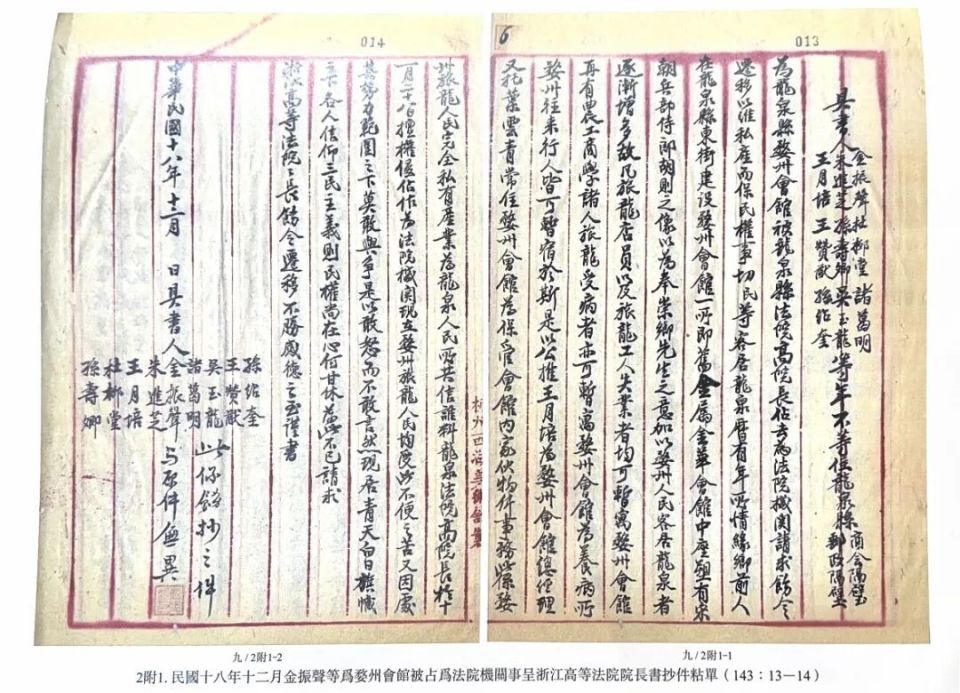 013
6
具書人
金振聲 杜鄉堂 諸葛明
朱進芝 孫壽卿 吳玉龍
王月培 王贊猷 孫紹奎
等年不等住龍泉縣
商會隔壁
郵政隔壁
為龍泉縣婺州會館被龍泉縣法院高院長佔去為法院機関請求飭令
遷移以維私產而保民權事切民等客居龍泉曆有年所情緣鄉前人
在龍泉縣東街建设婺州會館一所即舊金属金華會館中座塑有宋
朝兵部侍郎胡則之像以為奉崇鄉先生之意加以婺州人民客居龍泉者
逐漸增多故凡旅龍店員以及旅龍工人失業者均可暫寓婺州會館
再有農工商學諸人旅龍受病者亦可暫寓婺州會館為養病所
婺州往来行人皆可暫宿於斯是以公推王月培為婺州會館總经理
又托葉雲青常住婺州會館為保管會館内家伙物件事務此係婺
014
州旅龍人民完全私有産業為龍泉人民所共信誰料龍泉法院高院長於十
一月二十八日擅權侵佔作為法院機関現立婺州旅龍人民均受此不便之苦又因處
其势力範圍之下莫敢與争是以敢怒而不敢言然現居青天白日旗幟
之下各人信仰三民主義則民權尚在心何甘休為此不已請求
浙江高等法院院長飭令遷移不勝感德之至謹書
中華民國十八年十二月 日具書人
孫紹奎
王贊猷
吳玉龍
諸葛明
金振聲
朱進芝
王月培
杜鄉堂
孫壽卿
此係錄抄之件
与原件無異
九/2附1-2
九/2附1-1
2附1. 民國十八年十二月金振聲等爲婺州會館被占爲法院機關事呈浙江高等法院院長書抄件粘單（143：13—14）